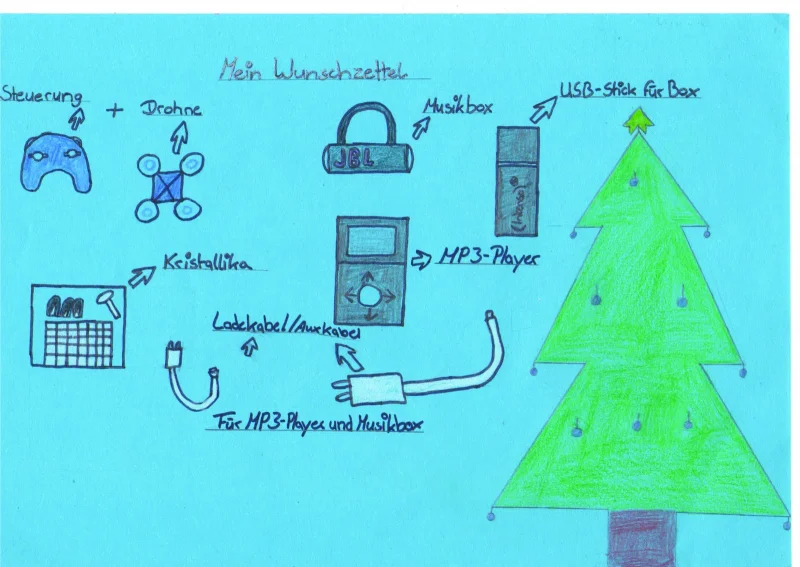 Mein Wunschzettel
Steuerung + Drohne
Musikbox
USB-Stick für Box
JBL
MP3-Player
Kristallika
Ladekabel/Auxkabel
Für MP3-Player und Musikbox